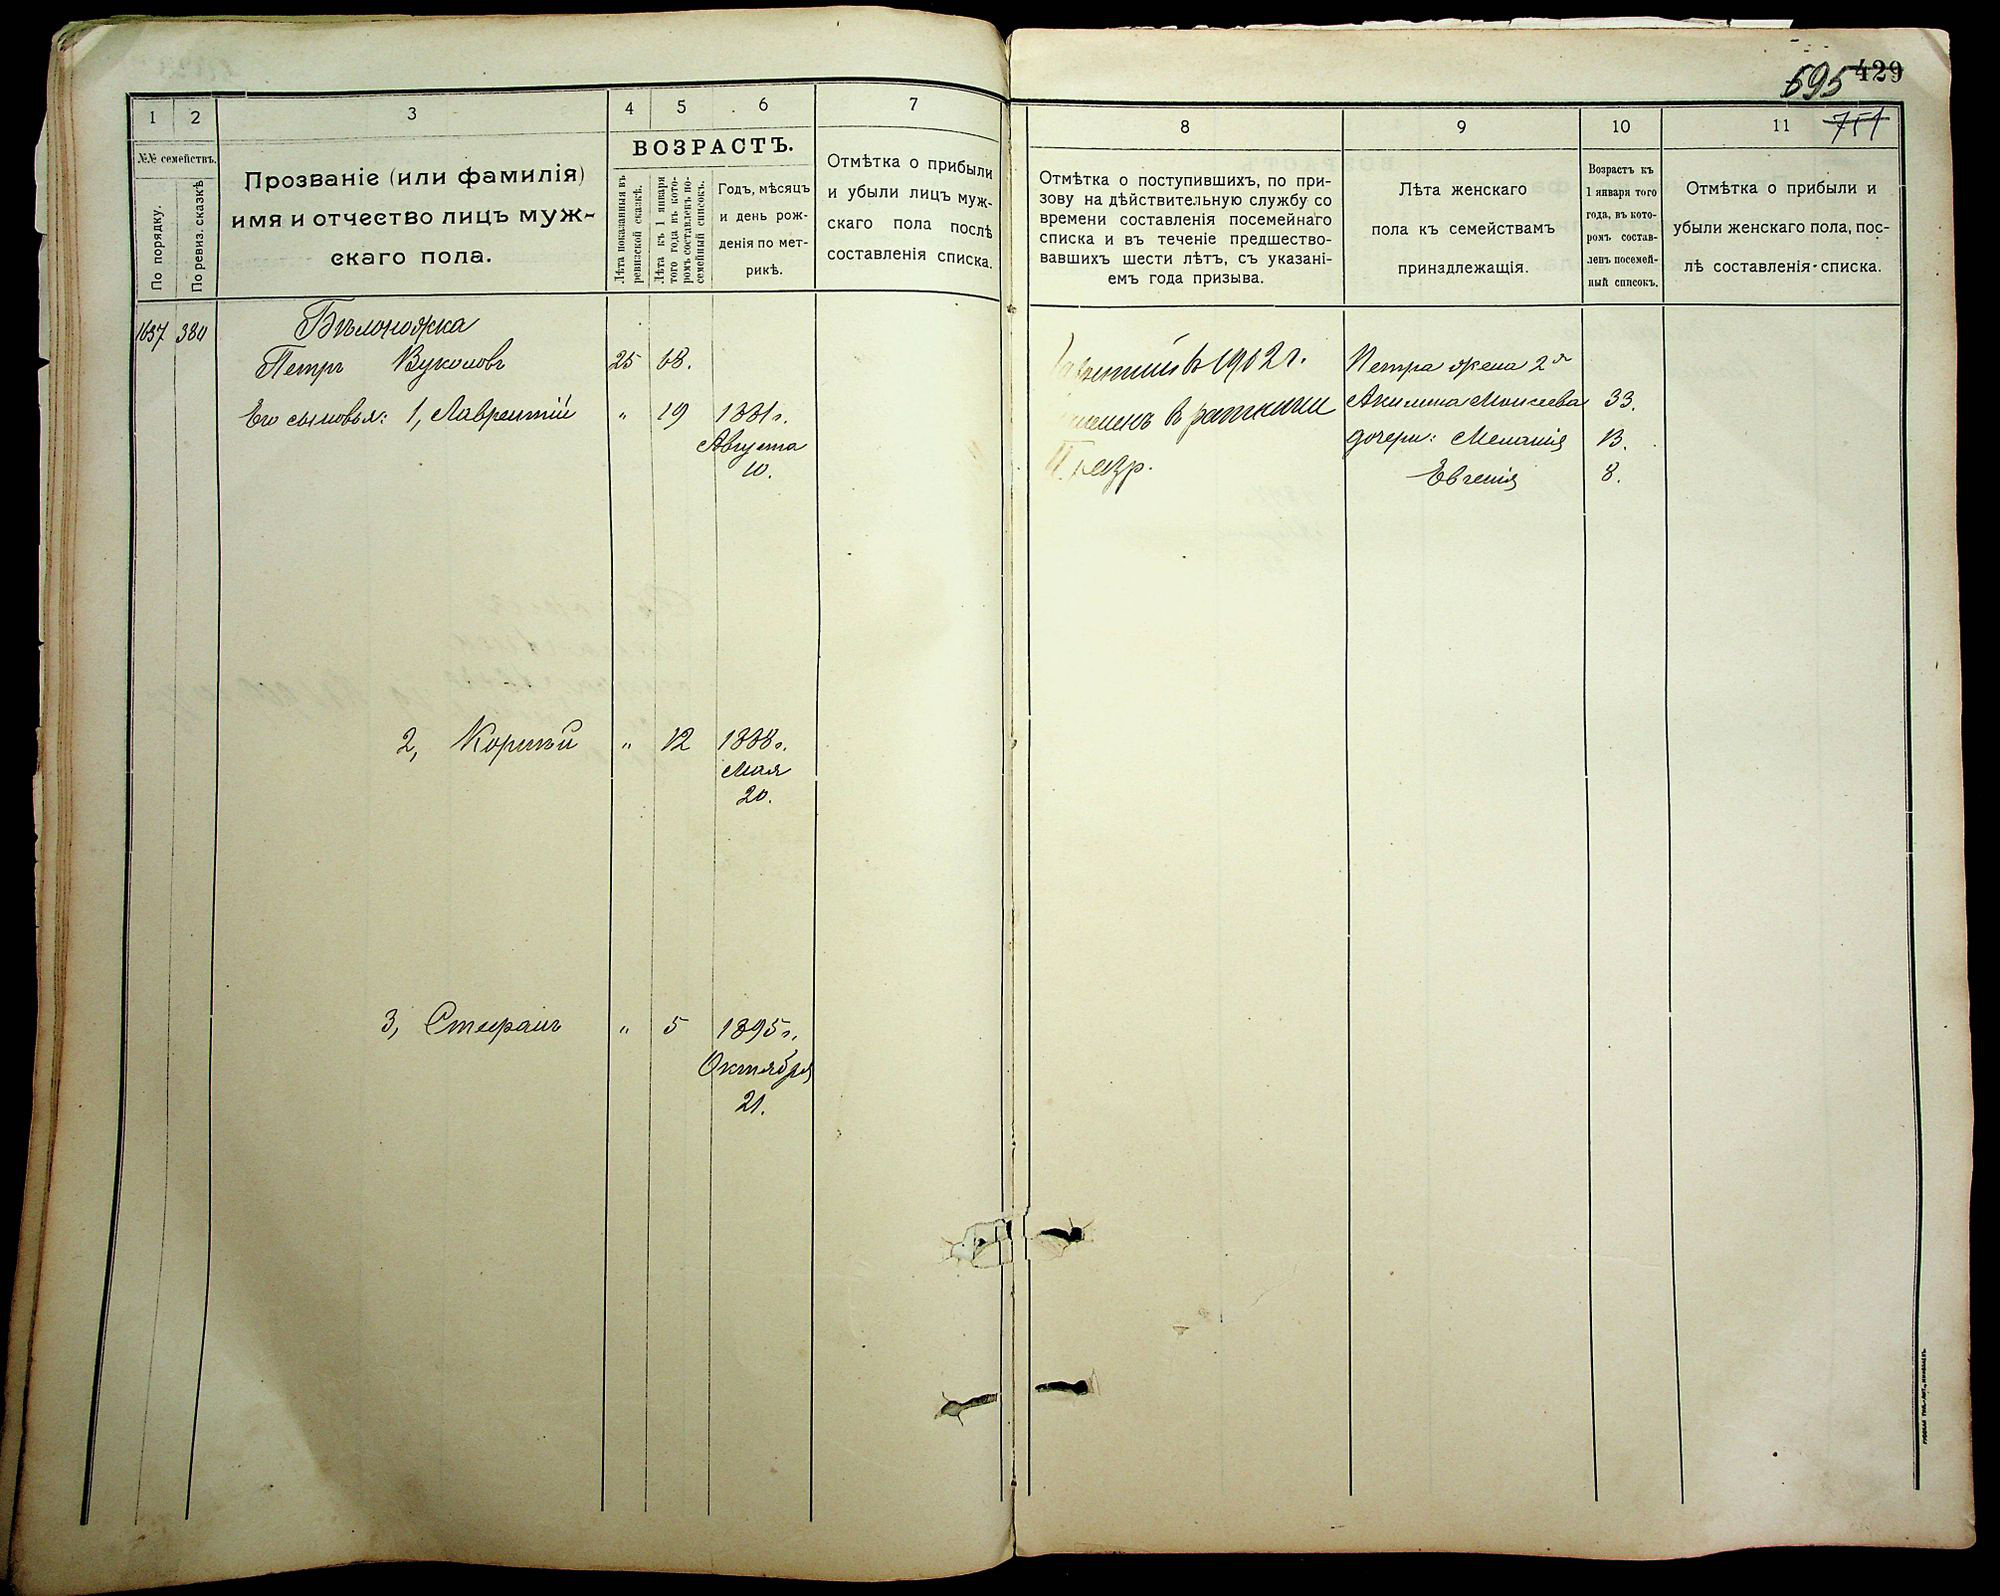 429
595
751
1
2
3
4
5
6
7
№№ семействъ.
По порядку.
По ревиз. сказкѣ
Прозваніе (или фамилія)
имя и отчество лицъ муж-
скаго пола.
ВОЗРАСТЪ.
Лѣта показанныя въ
ревизской сказкѣ.
Лѣта къ 1 января
того года въ кото-
ромъ составленъ по-
семейный списокъ.
Годъ, мѣсяцъ
и день рож-
денія по мет-
рикѣ.
Отмѣтка о прибыли
и убыли лицъ муж-
скаго пола послѣ
составленія списка.
1657 380 Бѣлоножка
Петръ Вуколовъ 25 68.
Его сыновья: 1, Лаврентій „ 19 1881г.
Августа
10.
2, Корнѣй „ 12 1888г.
Мая
20.
3, Стефанъ „ 5 1895г.
Октября
21.
8
9
10
11
Отмѣтка о поступившихъ, по при-
зову на дѣйствительную службу со
времени составленія посемейнаго
списка и въ теченіе предшество-
вавшихъ шести лѣтъ, съ указані-
емъ года призыва.
Лѣта женскаго
пола къ семействамъ
принадлежащія.
Возрастъ къ
1 января того
года, въ кото-
ромъ состав-
ленъ посемей-
ный списокъ.
Отмѣтка о прибыли и
убыли женскаго пола, пос-
лѣ составленія списка.
въ 1902 г. Петра жена 2я
в ратники Акилина Моисеева 33.
II разр. дочери: Меланія 13.
Евгенія 8.
РУССКАЯ ТИП.-ЛИТ., НИКОЛАЕВЪ.